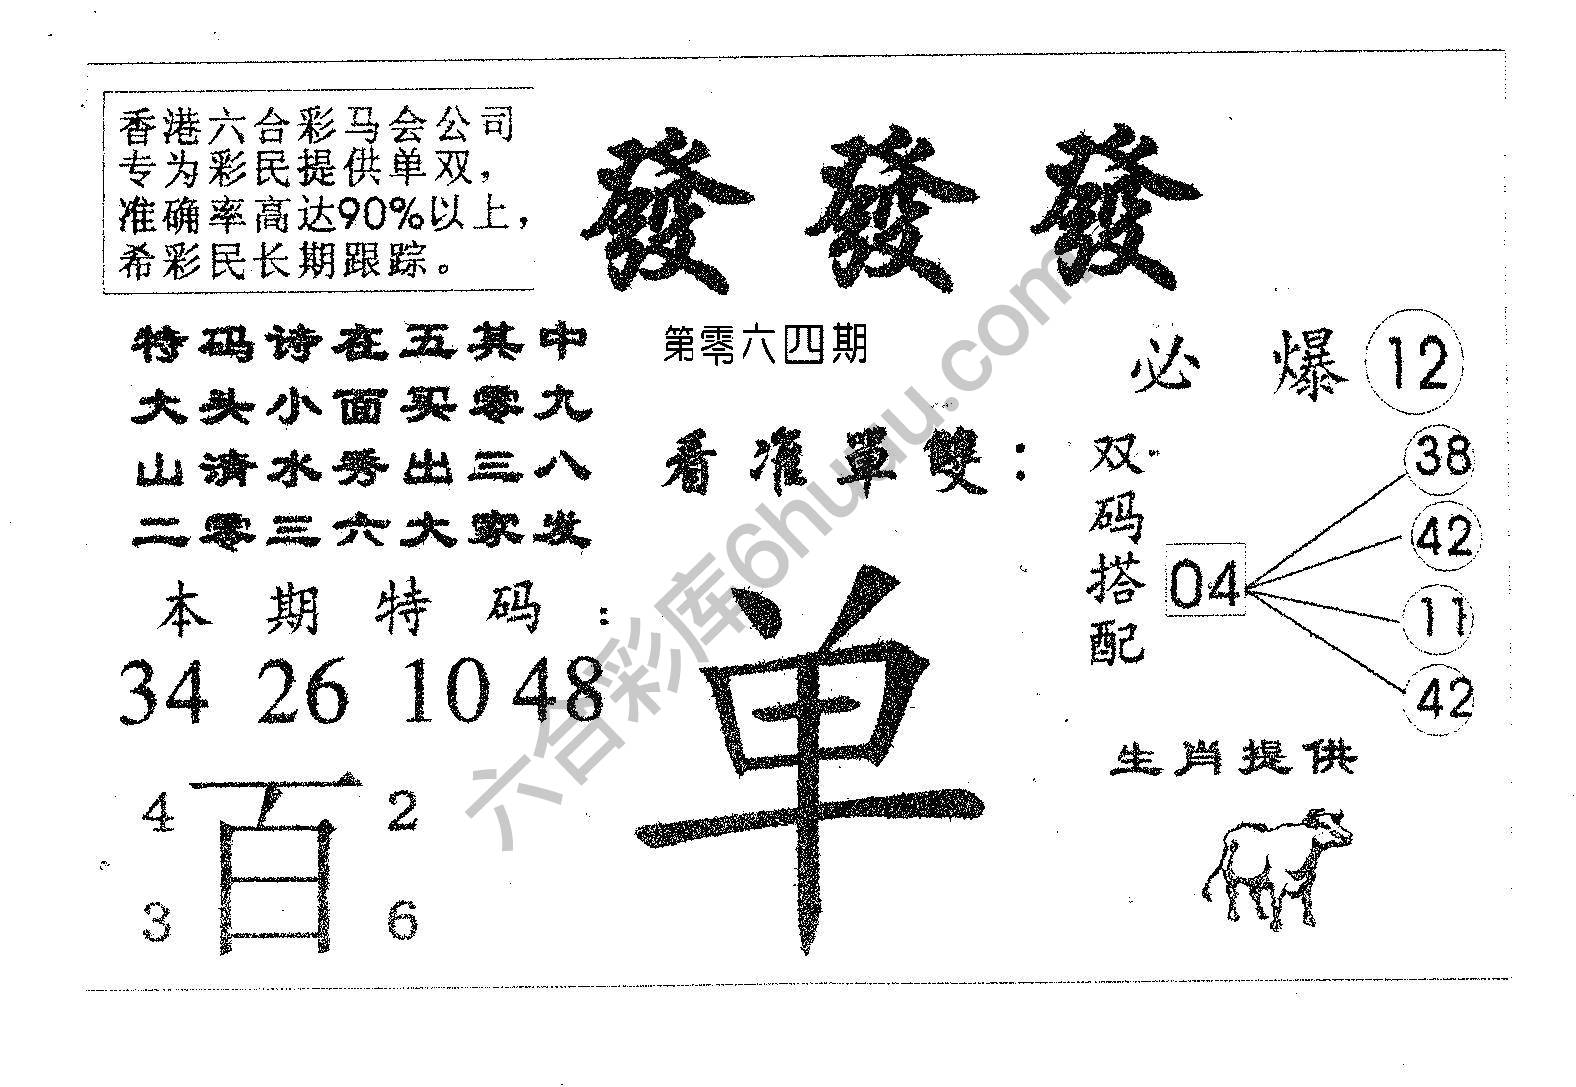 香港六合彩马会公司
专为彩民提供单双，
准确率高达90%以上，
希彩民长期跟踪。
發發發
特码诗在五其中
大头小面买零九
山清水秀出三八
二零三六大家发
第零六四期
看准單雙：
单
必爆 12
双码搭配
04
38
42
11
42
本期特码：
34 26 10 48
4 2
百
3 6
生肖提供
六合彩库6huuu.com